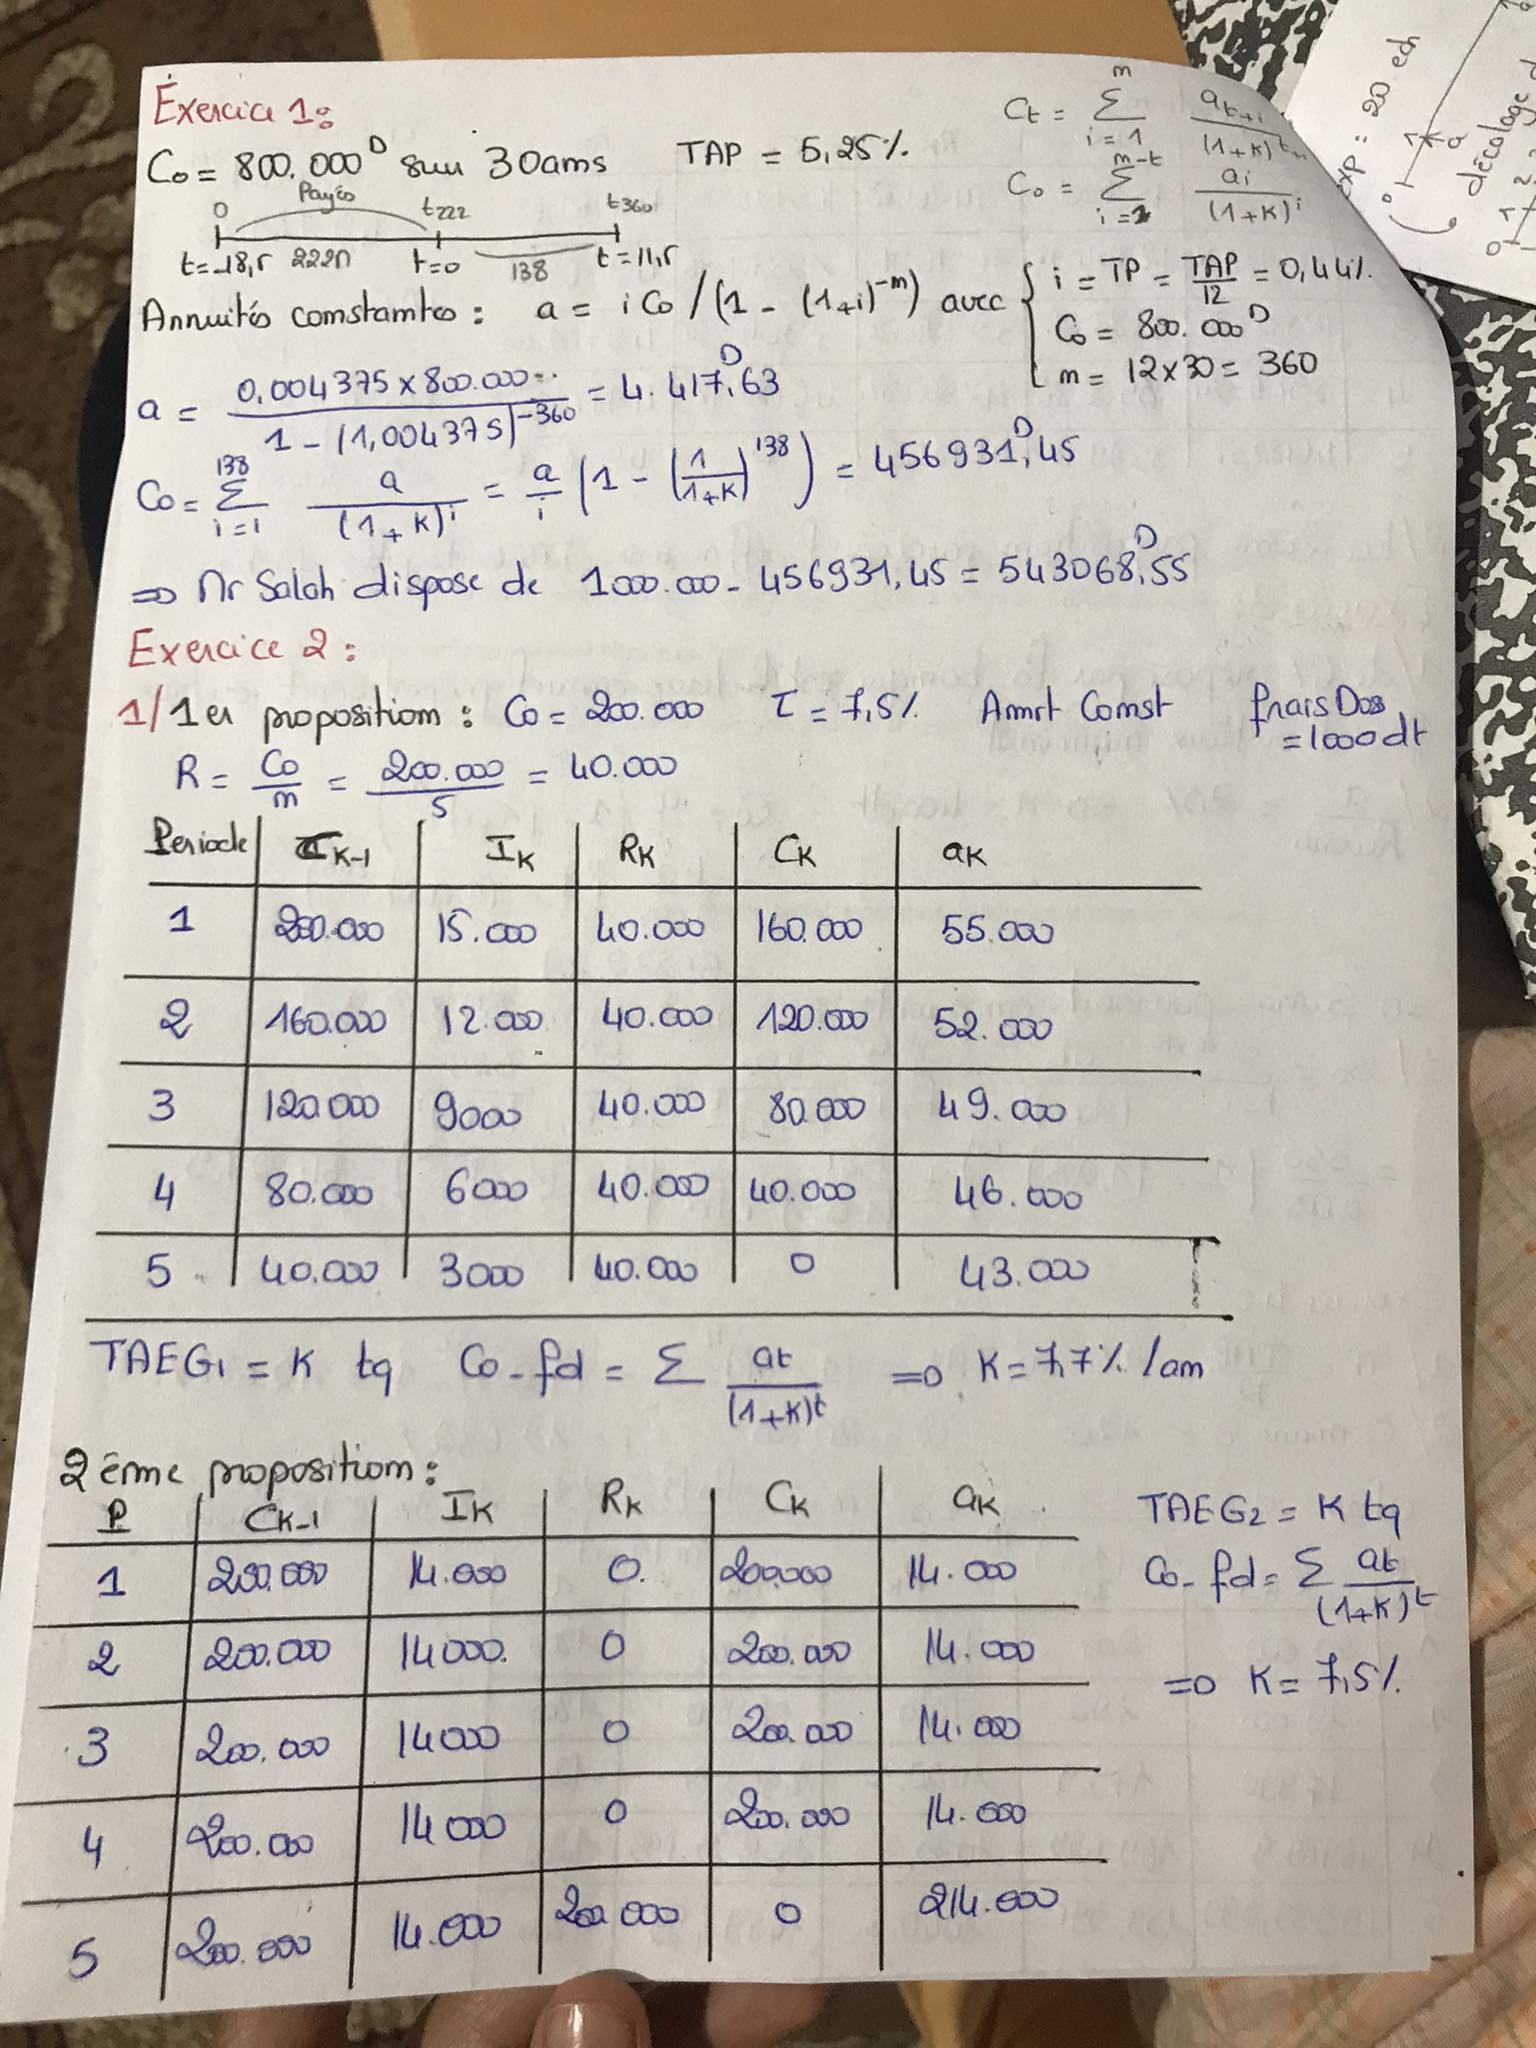 Éxercice 1:
C₀ = 800.000ᴰ sur 30 ans TAP = 5,25%
Ct = Σ (i=1 → n) a_{t+i} / (1+K)^{t+i}
C₀ = Σ (i=1 → n-t) ai / (1+K)^i
0 Payés t222 t360
t=-18,5 222n t=0 138 t=11,5
Annuités constantes : a = i C₀ / (1 - (1+i)^-n) avec { i = TP = TAP/12 = 0,44%
C₀ = 800.000ᴰ
n = 12×30 = 360
a = 0,004375 × 800.000 / 1 - (1,004375)^-360 = 4.417ᴰ,63
C₀ = Σ (i=1 → 138) a / (1+K)^i = a/i (1 - (1/1+K)^138) = 456931ᴰ,45
⇒ Mr Salah dispose de 1000.000 - 456931,45 = 543068ᴰ,55
Exercice 2 :
1/ 1er proposition : C₀ = 200.000 τ = 7,5% Amrt Const frais Dos = 1000 dt
R = C₀/n = 200.000/5 = 40.000
Periode K-1 IK RK CK aK
1 200.000 15.000 40.000 160.000 55.000
2 160.000 12.000 40.000 120.000 52.000
3 120.000 9000 40.000 80.000 49.000
4 80.000 6000 40.000 40.000 46.000
5 40.000 3000 40.000 0 43.000
TAEG₁ = K tq C₀ - fd = Σ at / (1+K)^t ⇒ K = 7,7% /an
2ème proposition :
P CK-1 IK RK CK aK
1 200.000 14.000 0. 200.000 14.000
2 200.000 14000. 0 200.000 14.000
3 200.000 14000 0 200.000 14.000
4 200.000 14000 0 200.000 14.000
5 200.000 14.000 200.000 0 214.000
TAEG₂ = K tq
C₀ - fd = Σ at / (1+K)^t
⇒ K = 7,5%
exp : 20 ech
décalage d